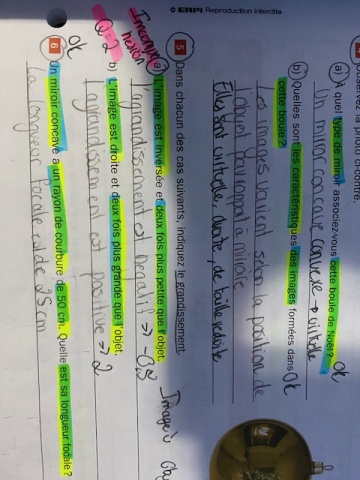 © ERPI Reproduction interdite
a) À quel type de miroir associez-vous cette boule de Noël?
Un miroir concave convexe → virtuelle
OK
b) Quelles sont les caractéristiques des images formées dans
cette boule?
OK
Les images varient selon la position de
l'objet par rapport à miroir
Elles sont virtuelle, droite, de taille réduite
5 Dans chacun des cas suivants, indiquez le grandissement.
a) L'image est inversée et deux fois plus petite que l'objet.
L'agrandissement est négatif => -0,5
b) L'image est droite et deux fois plus grande que l'objet.
G=2
L'agrandissement est positive => 2
OK
6 Un miroir concave a un rayon de courbure de 50 cm. Quelle est sa longueur focale?
La longueur focale est de 25 cm